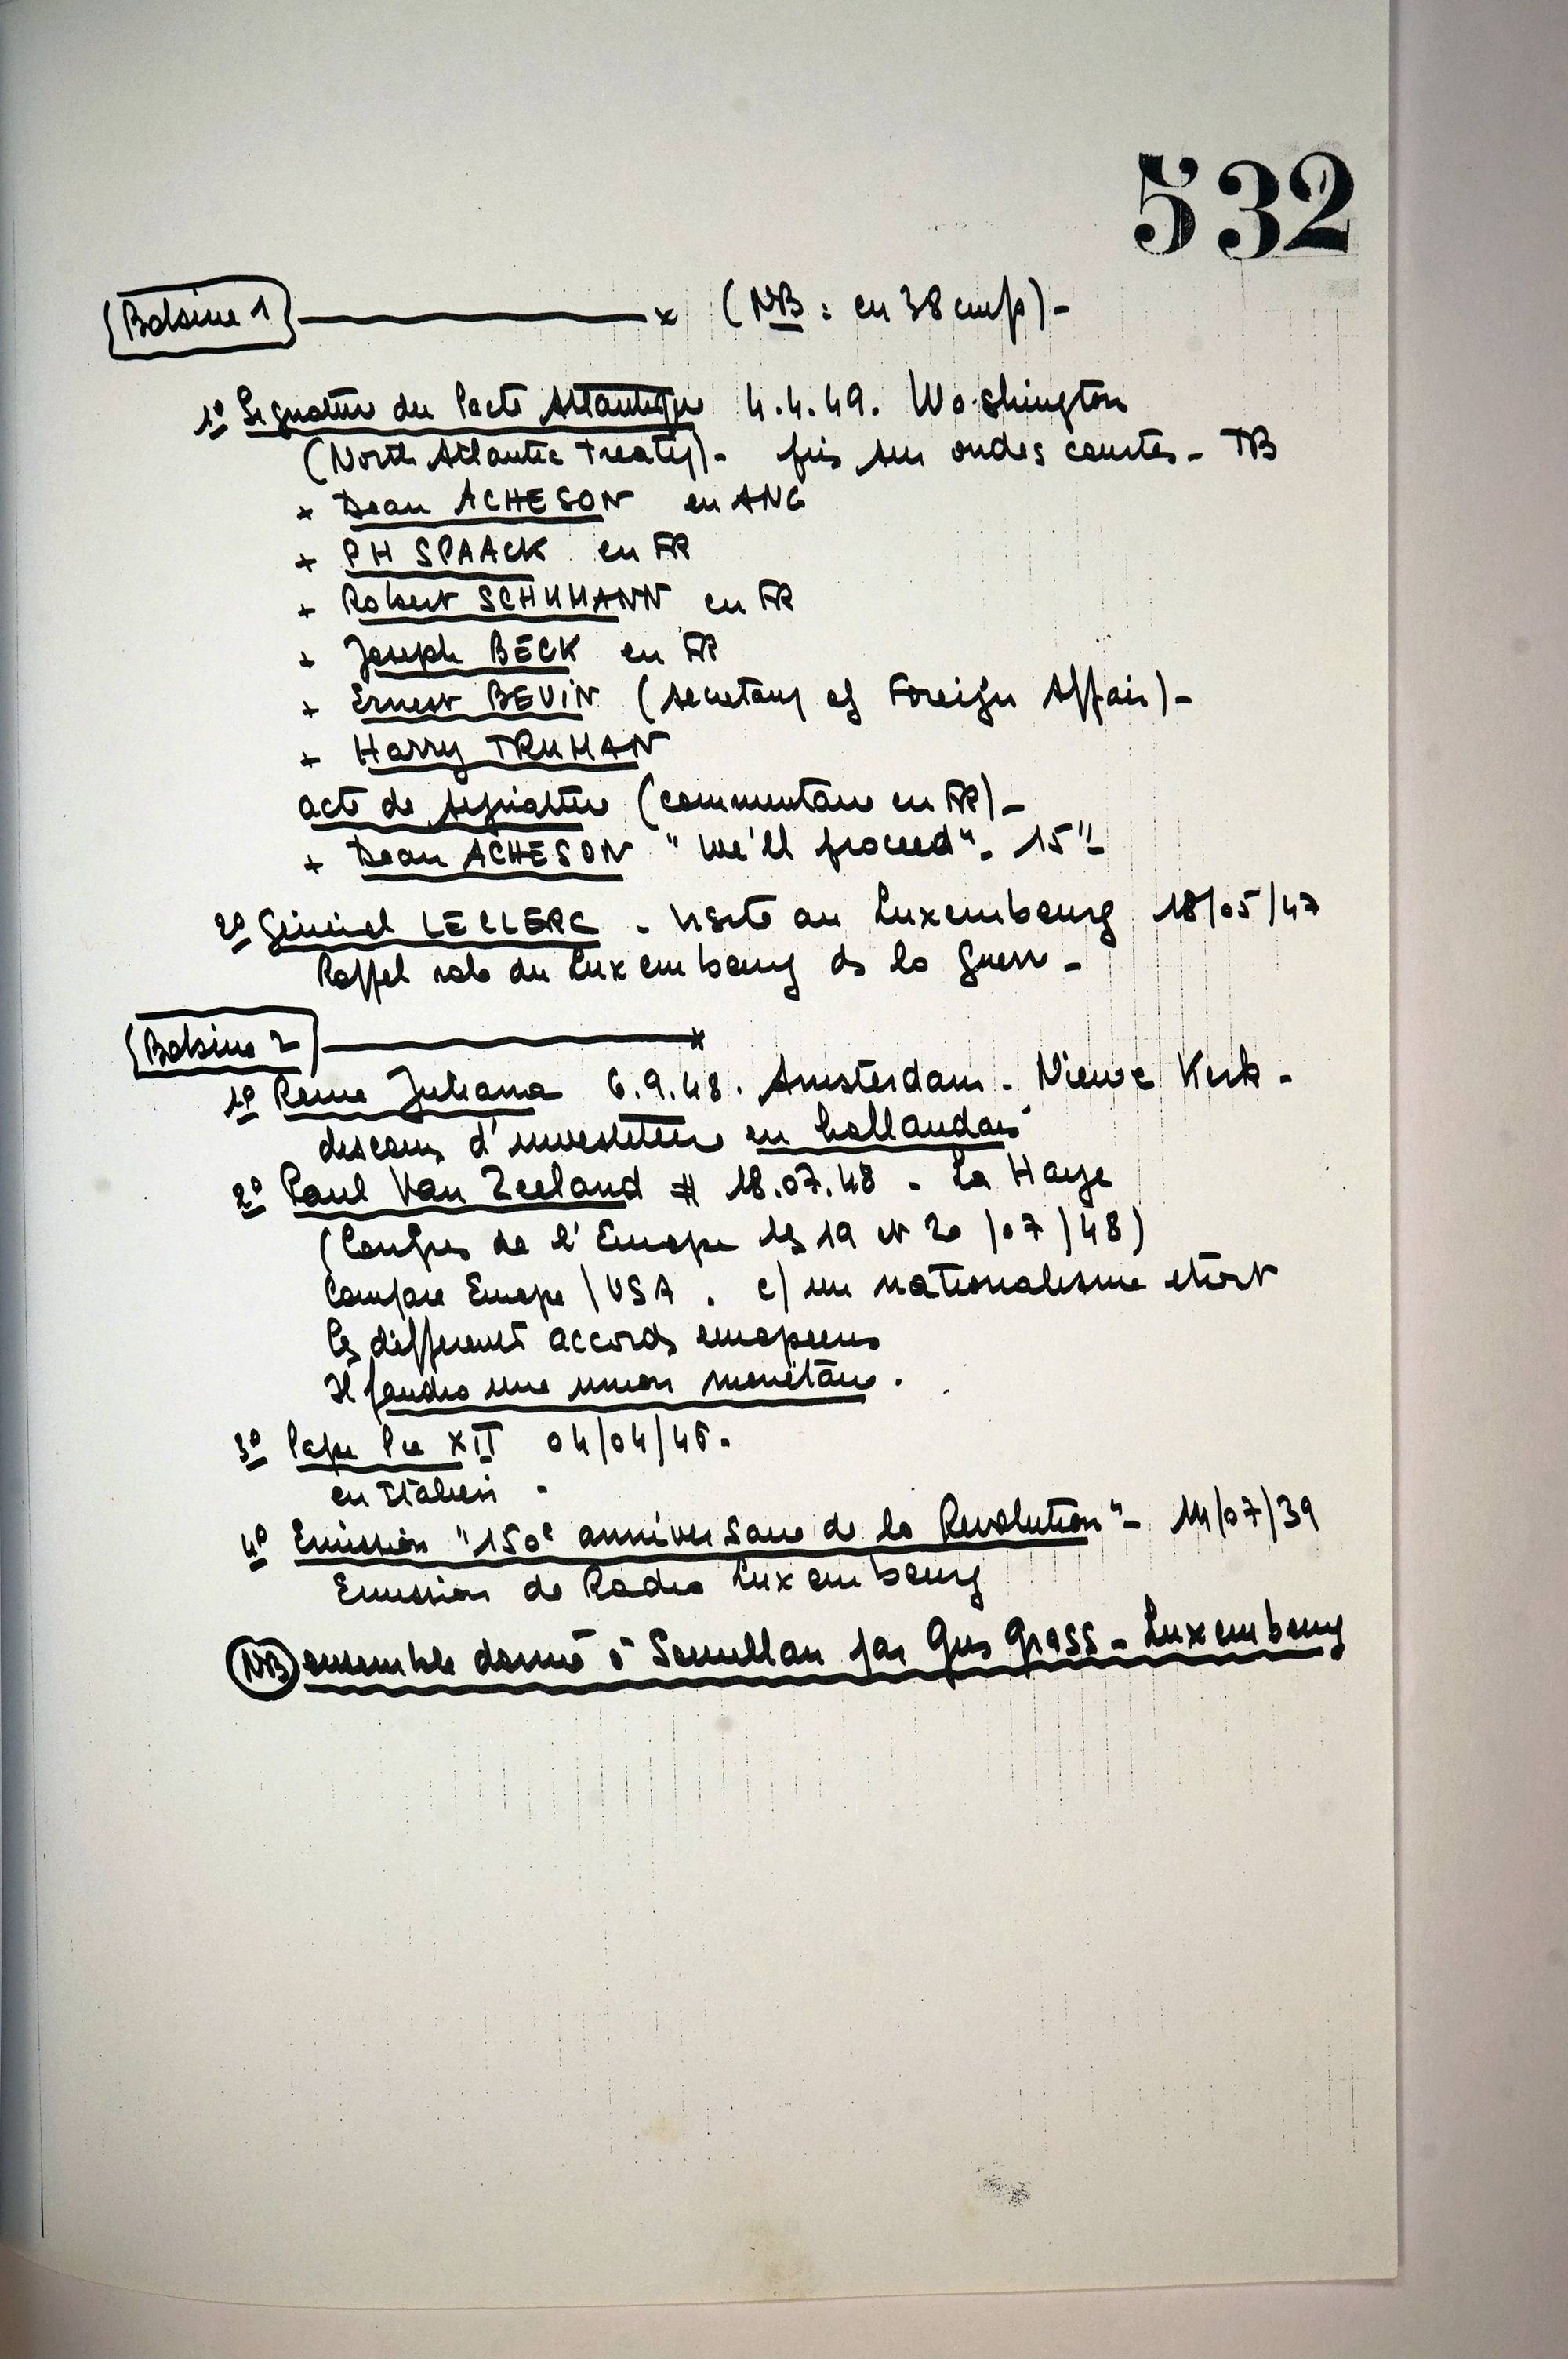 532
Bobine 1 x (NB : en 38 cm/s) -
1º Signature du Pacte Atlantique 4.4.49. Washington
(North Atlantic Treaty) - pris sur ondes courtes - TB
+ Dean ACHESON en ANG
+ PH SPAACK en FR
+ Robert SCHUMANN en FR
+ Joseph BECK en FR
+ Ernest BEVIN (secretary of Foreign Affair) -
+ Harry TRUMAN
acte de signature (commentaire en FR) -
+ Dean ACHESON "We'll proceed". 15"
2º Général LECLERC - visite au Luxembourg 18/05/47
Rappel role du Luxembourg ds la guerre -
Bobine 2 x
1º Reine Juliana 6.9.48. Amsterdam - Nieuwe Kerk -
discours d'investiture en hollandais
2º Paul Van Zeeland # 18.07.48 - La Haye
(Congrès de l'Europe les 19 et 20/07/48)
Compare Europe / USA . c/ un nationalisme étroit
les différents accords européens
Il faudra une union monétaire.
3º Pape Pie XII 04/04/46.
en Italien .
4º Emission "150e anniversaire de la Revolution" - 14/07/39
Emission de Radio Luxembourg
NB ensemble donné à par Gus Grass - Luxembourg